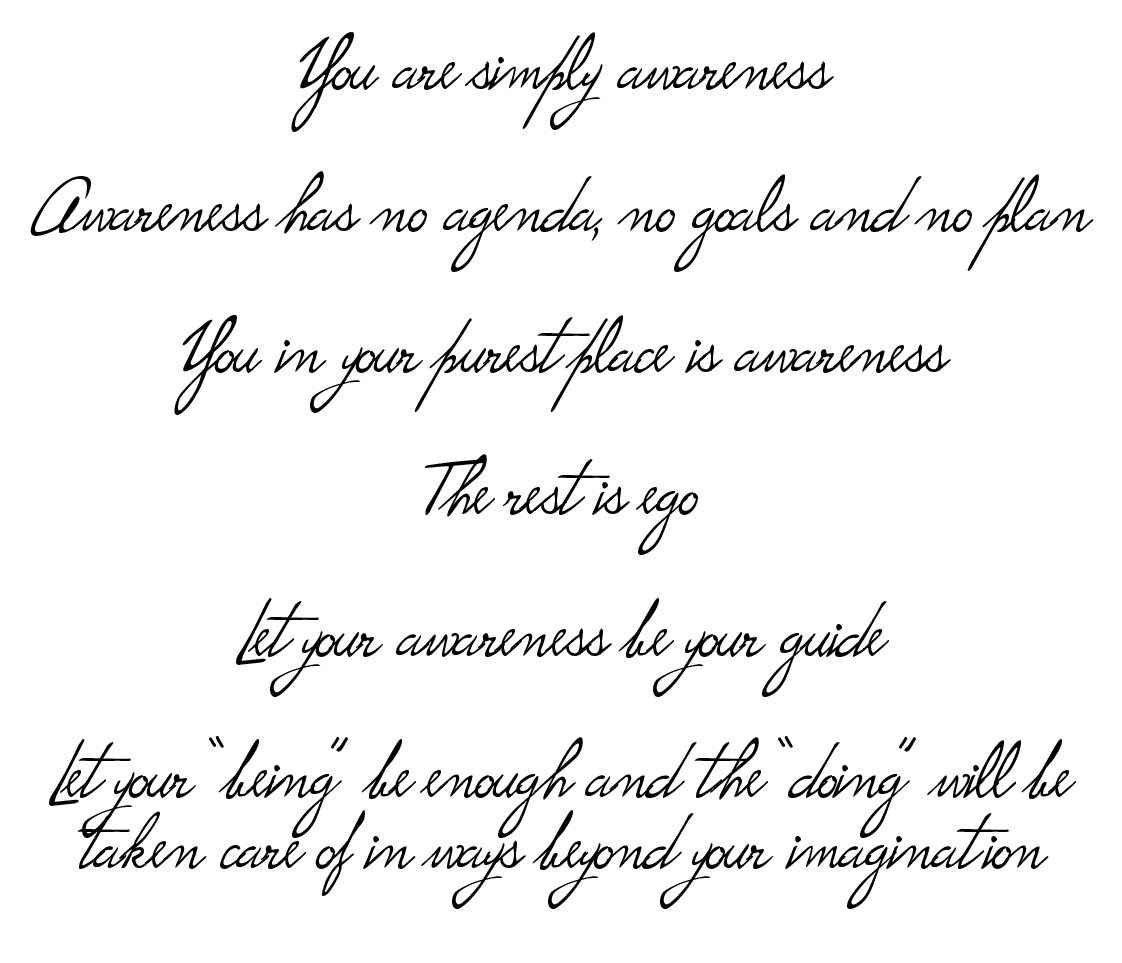 You are simply awareness
Awareness has no agenda, no goals and no plan
You in your purest place is awareness
The rest is ego
Let your awareness be your guide
Let your “being” be enough and the “doing” will be
taken care of in ways beyond your imagination